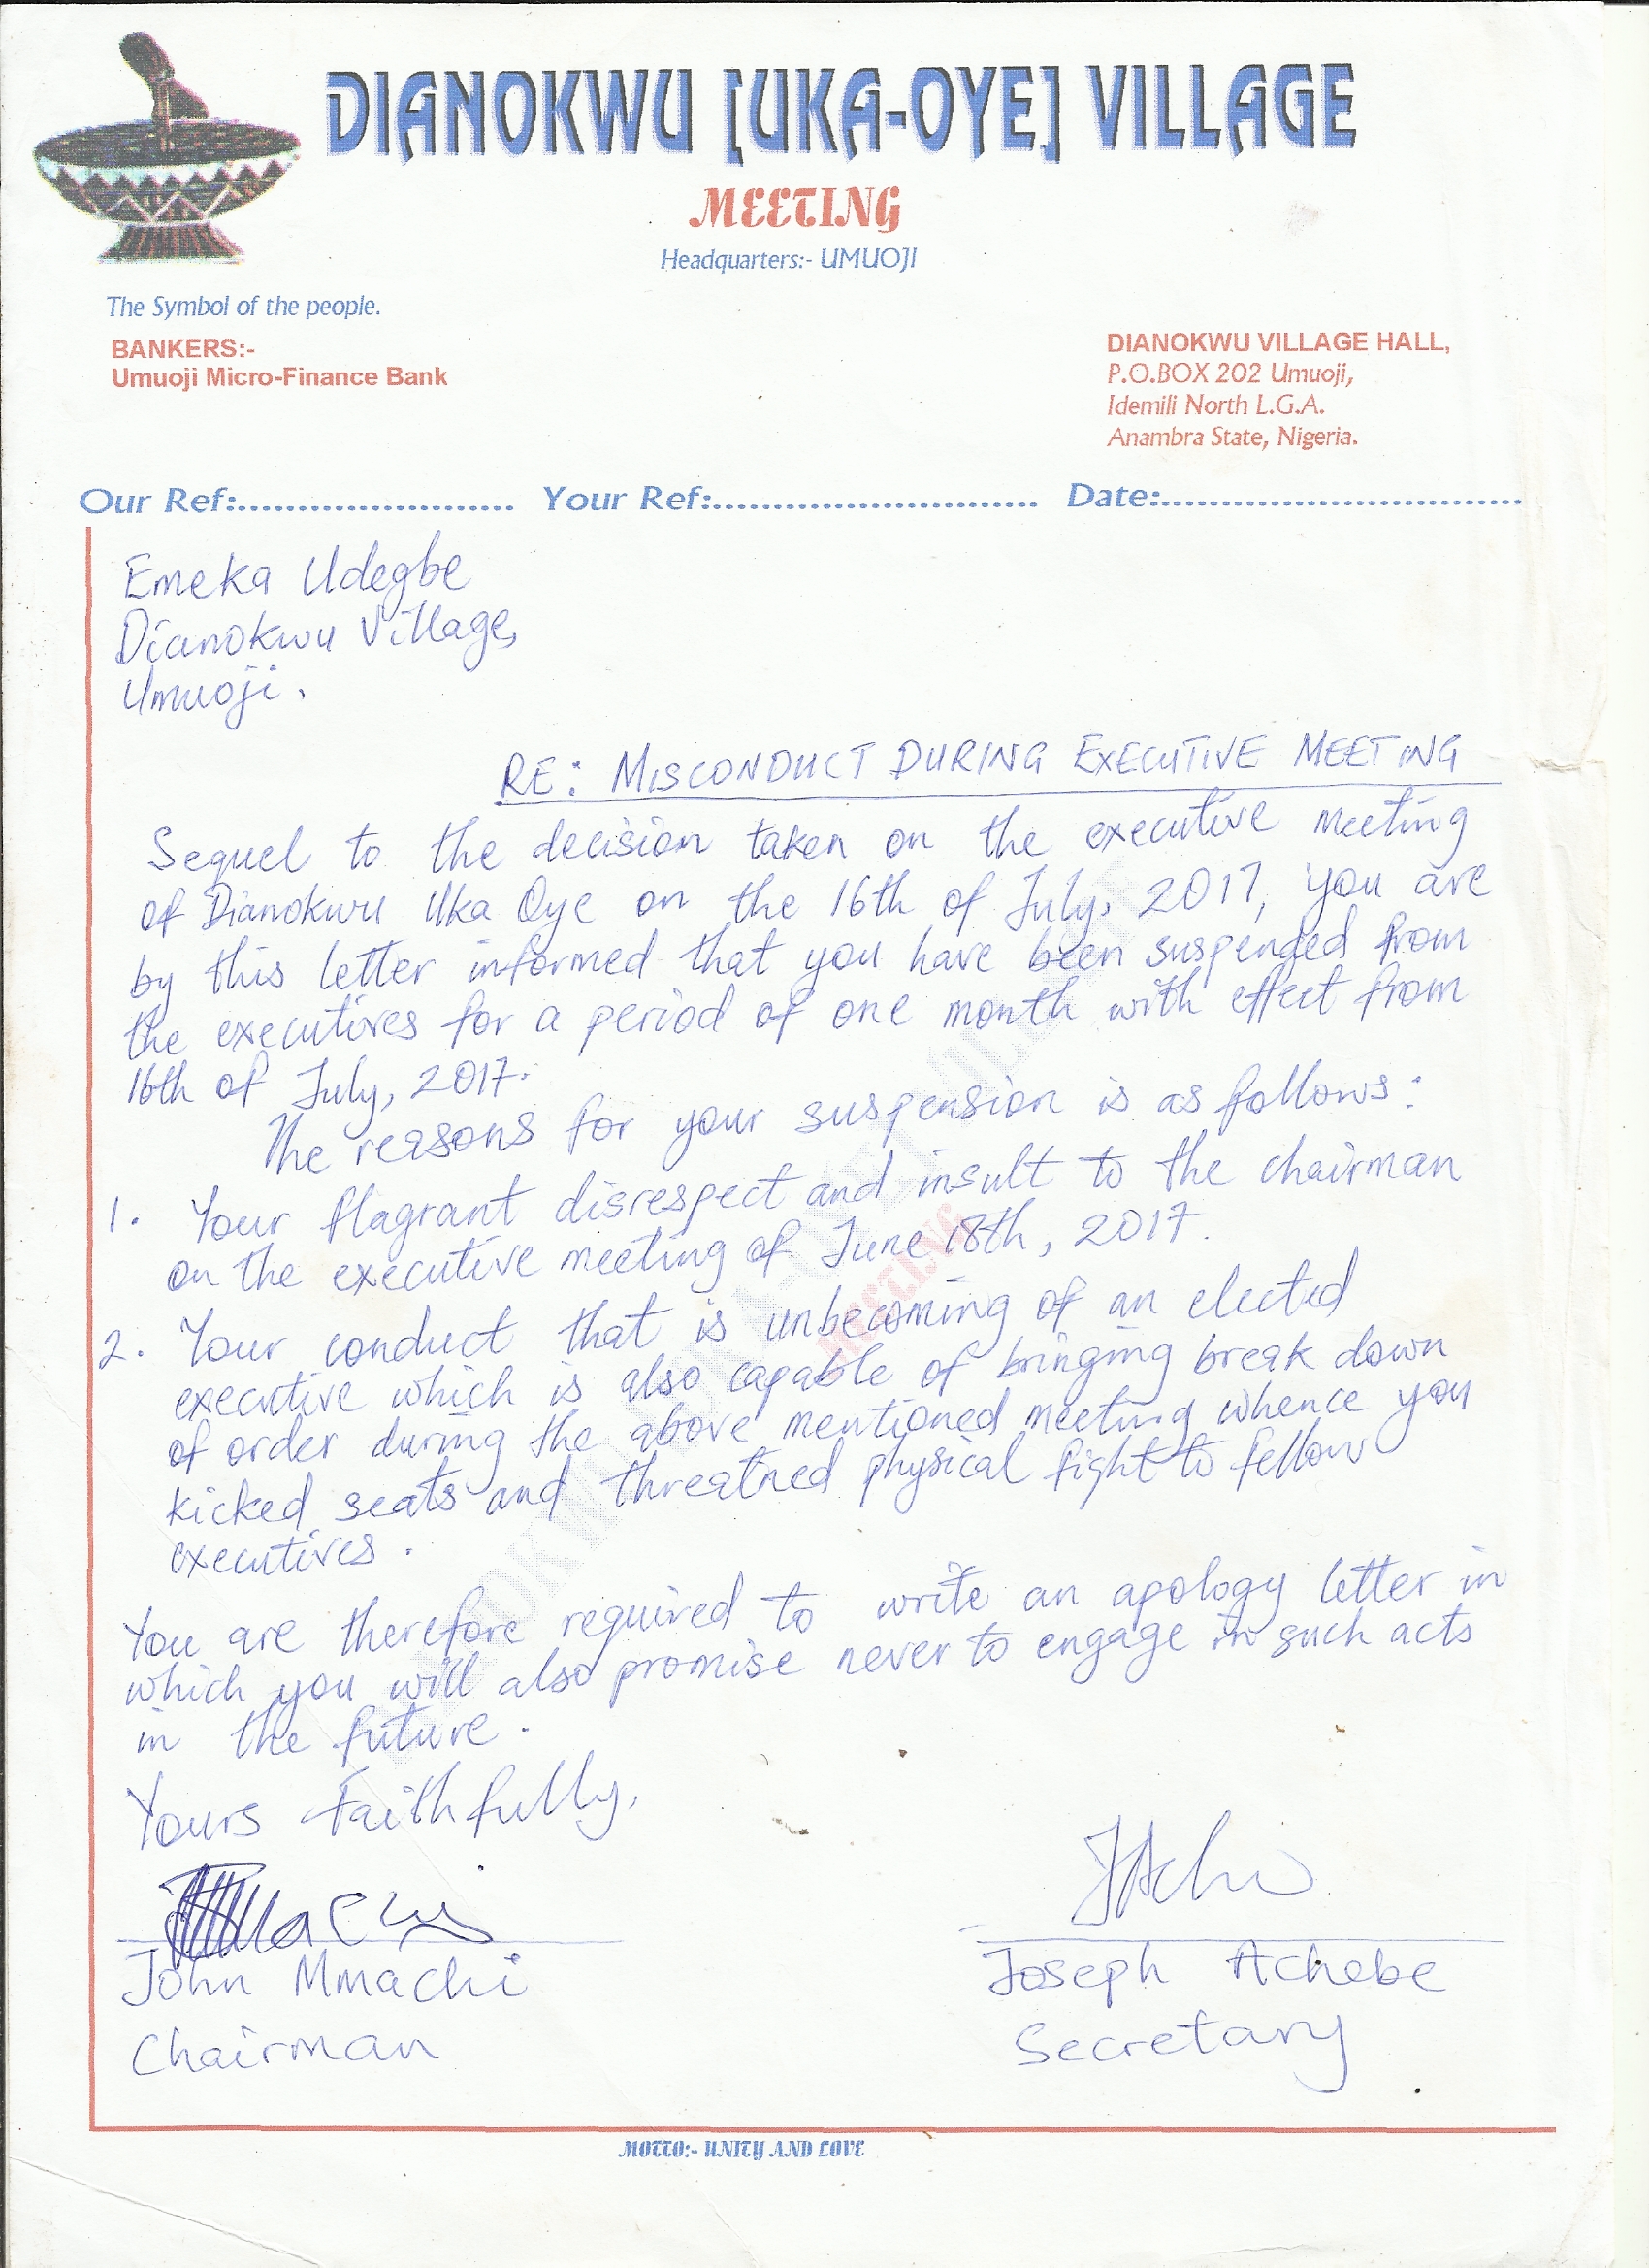 DIANOKWU [UKA-OYE] VILLAGE
MEETING
Headquarters:- UMUOJI
The Symbol of the people.
BANKERS:-
Umuoji Micro-Finance Bank
DIANOKWU VILLAGE HALL,
P.O.BOX 202 Umuoji,
Idemili North L.G.A.
Anambra State, Nigeria.
Our Ref:........................ Your Ref:............................ Date:...............................
Emeka Udegbe
Dianokwu Village,
Umuoji.
RE: MISCONDUCT DURING EXECUTIVE MEETING
Sequel to the decision taken on the executive meeting
of Dianokwu Uka Oye on the 16th of July, 2017, you are
by this letter informed that you have been suspended from
the executives for a period of one month with effect from
16th of July, 2017.
The reasons for your suspension is as follows:
1. Your flagrant disrespect and insult to the chairman
on the executive meeting of June 18th, 2017.
2. Your conduct that is unbecoming of an elected
executive which is also capable of bringing break down
of order during the above mentioned meeting whence you
kicked seats and threatned physical fight to fellow
executives.
You are therefore required to write an apology letter in
which you will also promise never to engage in such acts
in the future.
Yours Faithfully,
John Mmachi
Chairman
Joseph Achebe
Secretary
MOTTO:- UNITY AND LOVE
DIANOKWU [UKA-OYE] VILLAGE
MEETING